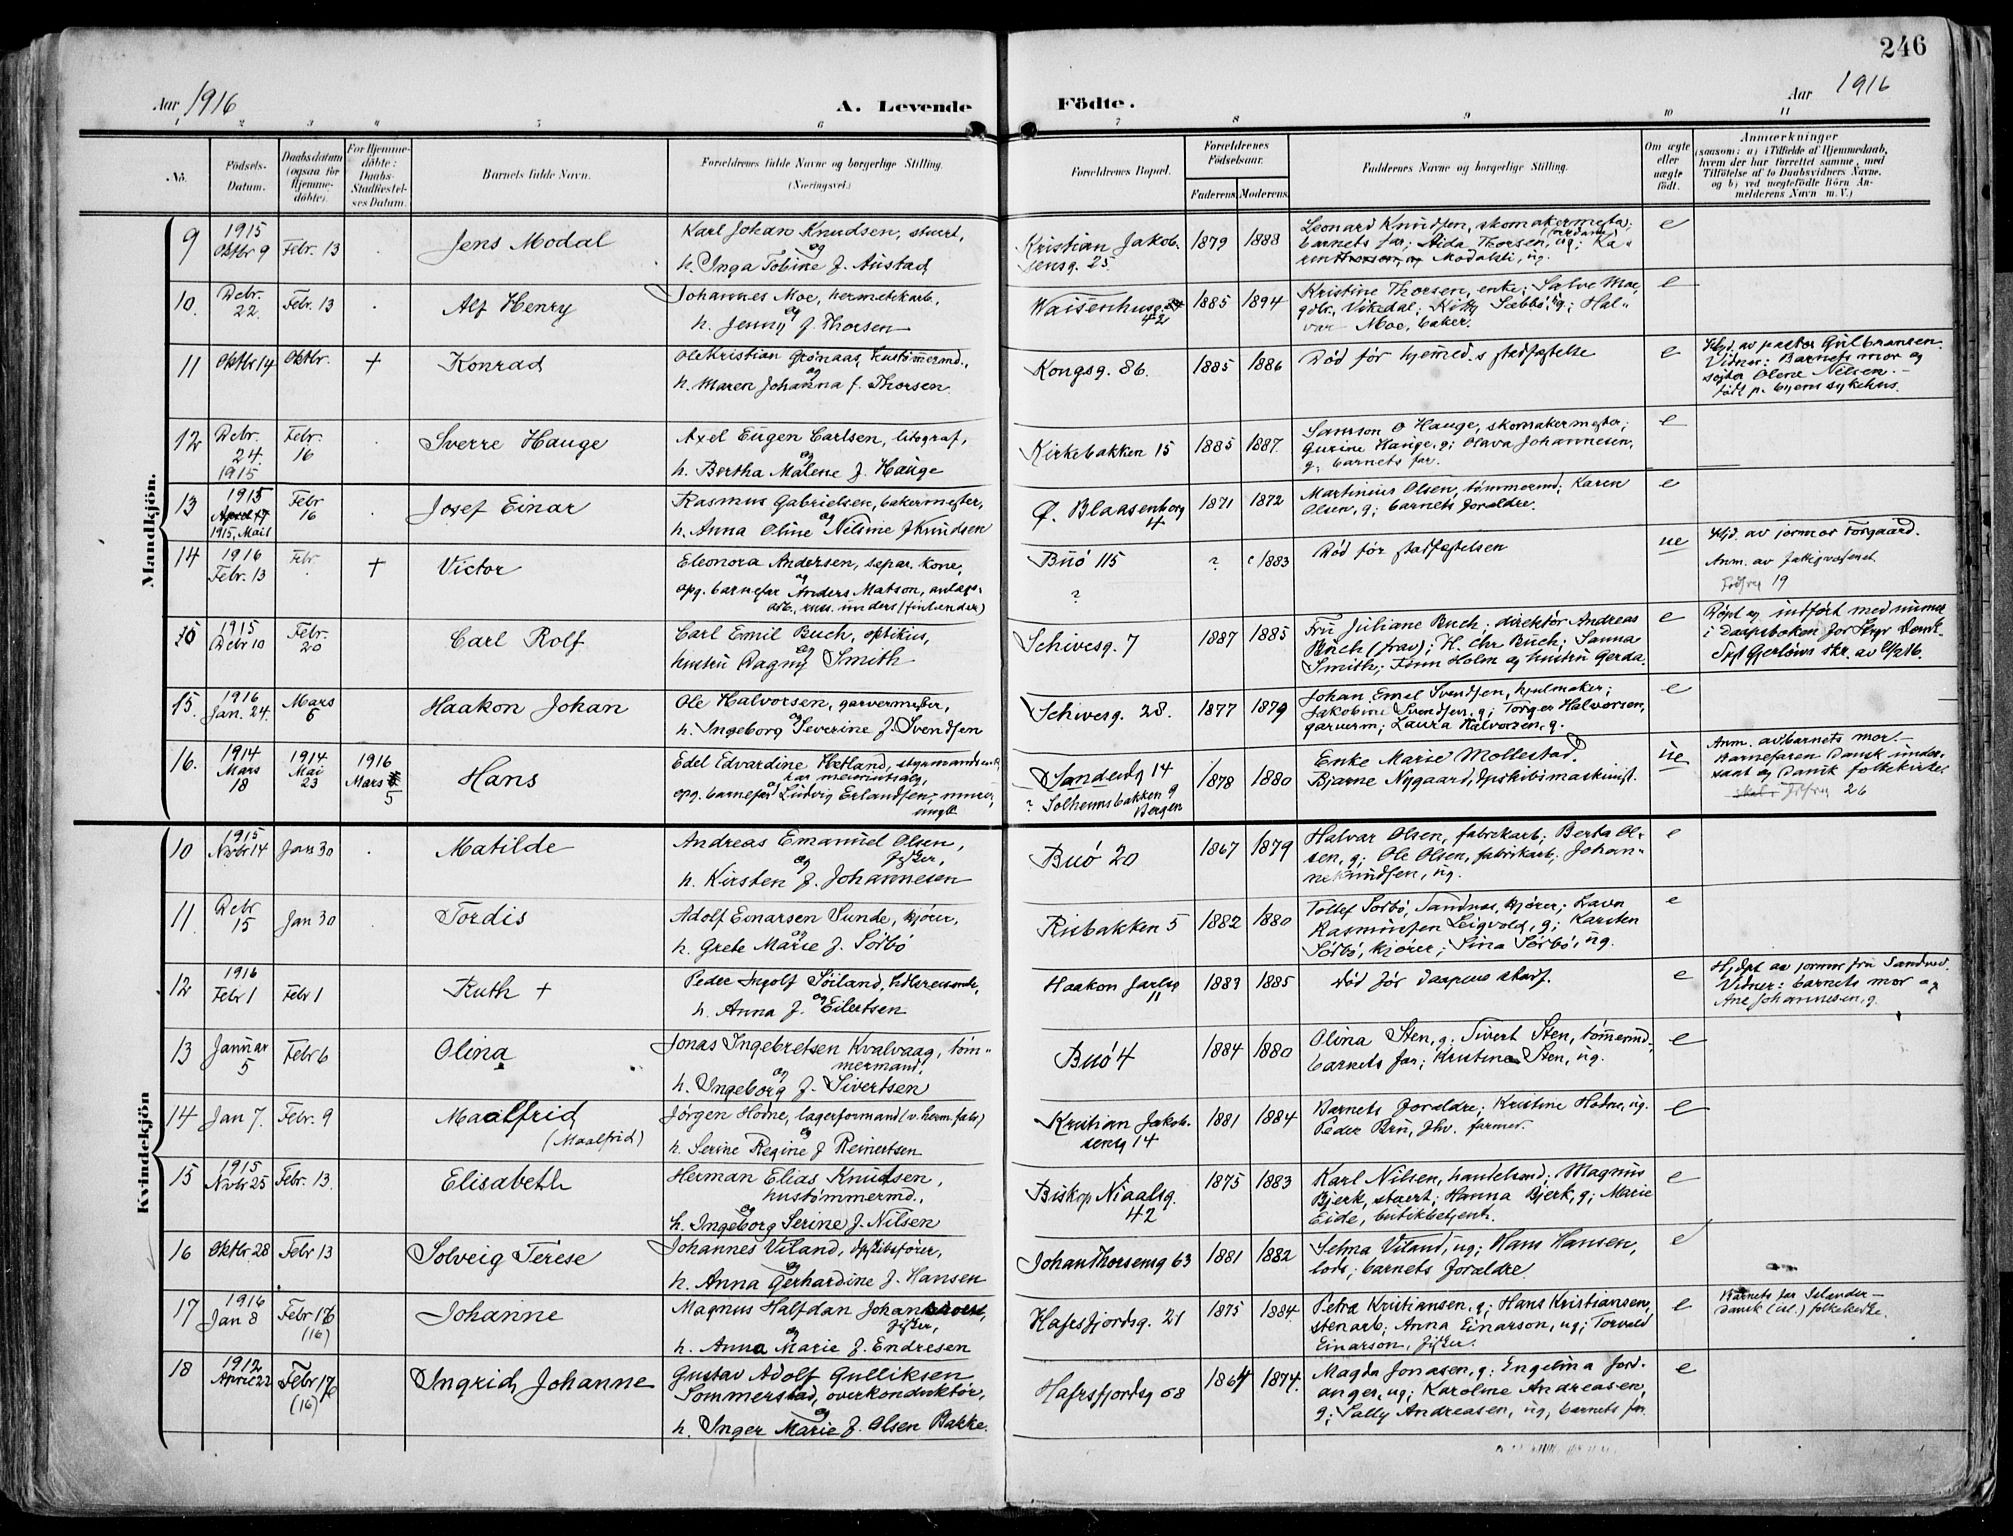 246
Aar 1916 A. Levende Födte. Aar 1916
1 2 3 4 5 6 7 8 9 10 11
No. Födsels-Datum. Daabsdatum (ogsaa for Hjemme-döbte). For Hjemme-döbte: Daabs-Stadfæstel-ses Datum. Barnets fulde Navn. Forældrenes fulde Navne og borgerlige Stilling. (Næringsvei.) Forældrenes Bopæl. Forældrenes Födselsaar. Faderens. Moderens. Faddernes Navne og borgerlige Stilling. Om ægte eller uægte födt. Anmærkninger
(saasom: a) i Tilfælde af Hjemmedaab, hvem der har forrettet samme, med Tilföielse af to Daabsvidners Navne, og b) ved uægtefödte Börn An-melderens Navn m. V.)
Mandkjön.
9 1915 Oktbr 9 Febr. 13 Jens Modal Karl Johan Knudsen, stuert,
og
h. Inga Tobine f. Austad
Kristian Jakob-
sensg. 25 1879 1888 Leonard Knudsen, skomakermester;
barnets far; Aida Thorsen, ug; Ka-
Modalsli, ug. e
10. Debr. 22. Febr. 13 Alf Henry Johannes Moe, hermetikarb,
og
h. Jenny f. Thorsen
Waisenhusg.
42 1885 1894 Kristine Thorsen, enke; Salve Moe,
gdbr, Vikedal; Kitty Sæbbø, ug; Hal-
var Moe, baker. e
11 Oktbr 14 Oktbr. + Konrad Ole Kristian Grønaas, hustømmermd.,
og
h. Maren Johanna f. Thorsen.
Kongsg. 86. 1885 1886 Død før hjemmed.s stadfæstelse e Hjd. av pastor Gulbransen.
Vidner: Barnets mor og
Olene Nilsen. -
født p. byens sykehus.
12 Debr. 24. 1915 Febr. 16 Sverre Hauge Axel Eugen Carlsen, litograf,
og
h. Bertha Malene f. Hauge
Kirkebakken 15 1885 1887. Samson O Hauge, skomakermester;
Gurine Hauge, g; Olava Johannesen,
g; barnets far. e
13 1915 April 17 1915, Mai 1 Febr 16 Josef Einar Rasmus Gabrielsen, bakermester,
og
h. Anna Oline Nilsine f Knudsen
Ø. Blaasenborg
4 1871 1872 Martinius Olsen, tømmermd; Karen
Olsen, g; barnets foraldre. e
14 1916 Febr. 13 Febr. + Victor Eleonora Andersen, separ. kone,
og
opg. barnefar Anders Matson, anlægs-
arb, russ. unders (finlænder)
Buø 115
? ? 1883 Død før stadfæstelsen ue Hjd. av jormor Forgaard.
Anm. av fattigvæsenet
19
1915 Debr 10 Febr. 20 Carl Rolf Carl Emil Buch, optikus,
og
hustru Dagny Smith
Schivesg. 7 1887 1885 Fru Juliane Buch; direktør Andreas
Buch (frav); H. Chr Buch; Sanna
Smith; Finn Holm og hustru Gerda. e Døpt og indført med numer
i daapsboken for
15. 1916 Jan. 24. Mars 5 Haakon Johan Ole Halvorsen, garvermester,
og
h. Ingeborg Severine f. Svendsen
Schivesg. 28. 1877 1879 Johan Emil Svendsen, hjulmaker;
Jakobine Svendsen, g; Torger Halvorsen,
garverm; Laura Halvorsen, g. e
16. 1914 Mars 18 1914 Mai 23 1916 Mars 5 Hans Edel Edvardine Hetland, styrmands enke,
og
opg. barnefar Ludvig Erlandsen, murer,
ungk
Sandeidg 14
? Solheimsbakken 9
Bergen 1878 1880 Enke Marie Mollestad.
Bjarne Nygaard, dpskibsmaskinist. ue Anm. av barnets mor. -
Barnefaren Dansk under-
saat og Dansk folkekirke.
26
Kvindekjön
10 1915 Novbr 14 Jan 30 Matilde Andreas Emanuel Olsen,
fisker,
og
h. Kirsten f. Johannesen
Buø 20 1867 1879 Halvar Olsen, fabrikarb; Berta Ol-
sen, g; Ole Olsen, fabrikarb; Johan-
ne Knudsen, ug. e
11 Debr 15 Jan 30 Tordis Adolf Einarsen Sunde, kjører,
og
h. Grete Marie f. Sørbø
Risbakken 5 1882 1880 Tollef Sørbø, Sandnes, kjører; Lava
Rasmussen Leigvold, g; Karsten
Sørbø, kjører; Sina Sørbø, ug. e
12 1916 Febr 1 Febr 1 Ruth + Peder Ingolf Soiland, hdlsreisende,
og
h. Anna f. Eilertsen
Haakon Jarlsg
11 1883 1885 Død før daapens stadf. e Hjdpt av jormor fru Sandved.
Vidner: barnets mor og
Ane Johannesen, g.
13 Januar 5 Febr 6 Olina Jonas Ingebretsen Kvalvaag, tøm-
mermand,
og
h. Ingeborg f. Sivertsen
Buø 4 1884 1880 Olina Sten, g; Sivert Sten, tømmermd;
barnets far; Kristine Sten, ug. e
14 Jan 7. Febr. 9 Maalfrid
(Maalfrid) Jørgen Hodne, lagerformand (v. herm. fabr)
og
h. Serine Regine f Reinertsen
Kristian Jakob-
sensg 14 1881 1884 Barnets foraldre; Kristine Hodne, ug.
Peder Bru, fhv. farmer. e
15 1915 Novbr 25 Febr. 13. Elisabeth Herman Elias Knudsen,
hustømmermd.,
og
h. Ingeborg Serine f. Nilsen
Biskop Niaalsg.
42 1875 1883 Karl Nilsen, handelsmd; Magnus
Bjerk, stuert; Hanna Bjerk, g; Marie
Eide, butikbetjent. e
16 Oktbr 28 Febr 13 Solveig Terese Johannes Viland, dpskibsfører,
og
h. Anna Gerhardine f. Hansen
Johan Thorsensg 63 1881 1882 Selma Viland, ug; Hans Hansen,
lods; barnets foraldre. e
17 1916 Jan 8 Febr 16
(16) Johanne Magnus Halfdan Johan
fisker,
og
h. Anna Marie f. Endresen
Hafrsfjordsg. 21 1875 1884. Petra Kristiansen, g; Hans Kristiansen,
stenarb; Anna Einarson, ug; Torvald
Einarson, fisker. e Barnets far Islænder -
dansk (isl.) folkekirke.
18 1912 April 22 Febr 16
(16) Ingrid Johanne Gustav Adolf Gulliksen
Sommerstad, overkonduktør,
og
h. Inger Marie f. Olsen Bakke.
Hafrsfjordsg 68 1864 1874. Magda Jonasen, g; Engelina Jord-
anger, ug; Karoline Andreasen,
g; Sally Andreasen, ug, barnets far. e